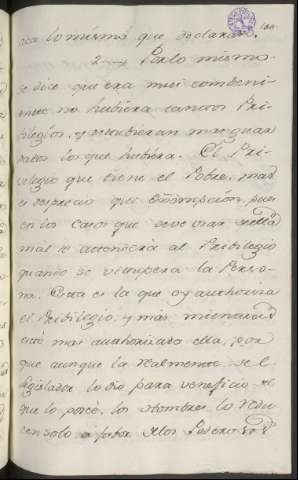 dice lo mismo que declarado.
2 Por lo mismo
se dice que era mui combeni
ente no hubiera tantos Pri
vilegios, y estubieran mas guar
dados los que hubiera. El Pri
vilegio que tiene el Pobre, mas
es desprecio que exempcion, pues
en los casos que deve usar de el
mal se atendera al Pribilegio
quando se vitupera la Perso
na. Esta es la que oy authoriza
el Pribilegio, y mas mientras
esta mas authorizada ella, por
que aunque la realmente el
legislador lo dio para veneficio de
que lo posee, los hombres lo redu
cen solo a fabor de los Poderosos